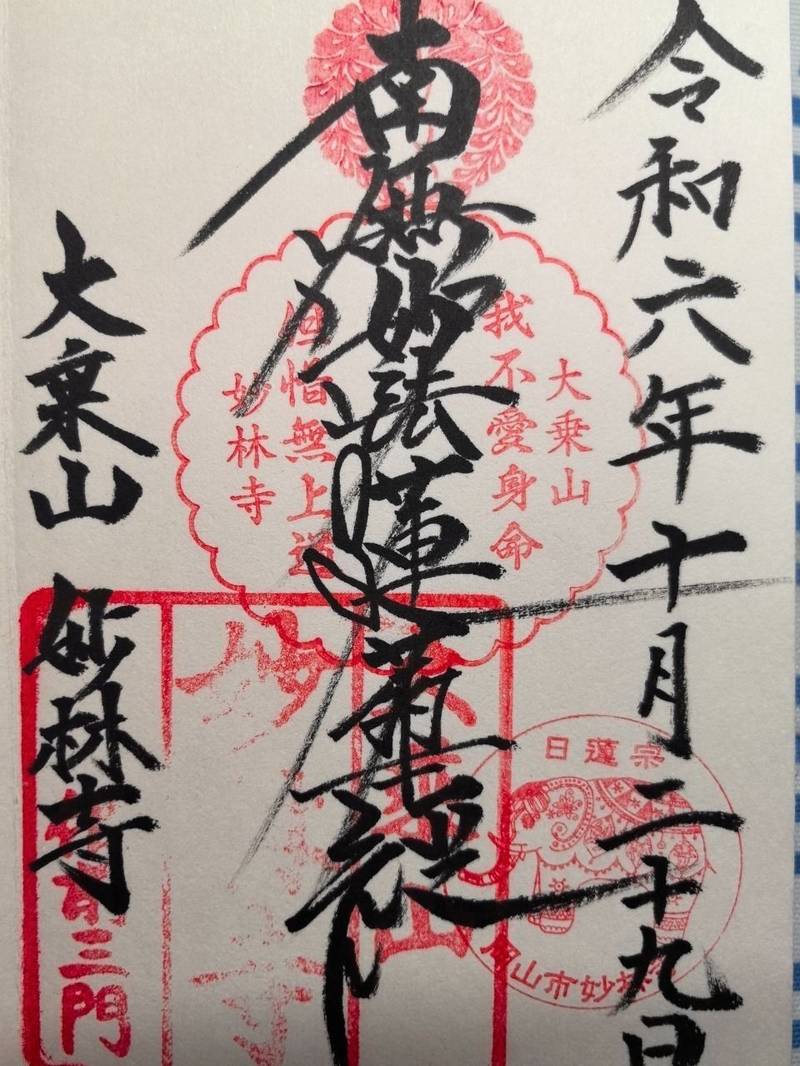 令和六年十月二十九日
南無妙法蓮華経
大乗山 妙林寺
大乗山
我不愛身命
但惜無上道
妙林寺
日蓮宗
岡山市妙林寺
大乗山
妙林寺
三門